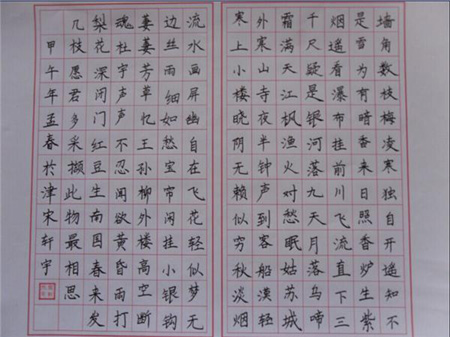 墙角数枝梅凌寒独自开遥知不
是雪为有暗香来日照香炉生紫
烟遥看瀑布挂前川飞流直下三
千尺疑是银河落九天月落乌啼
霜满天江枫渔火对愁眠姑苏城
外寒山寺夜半钟声到客船漠轻
寒上小楼晓阴无赖似穷秋淡烟
流水画屏幽自在飞花轻似梦无
边丝雨细如愁宝帘闲挂小银钩
萋萋芳草忆王孙柳外楼高空断
魂杜宇声声不忍闻欲黄昏雨打
梨花深闭门红豆生南国春来发
几枝愿君多采撷此物最相思
甲午年孟春於津宋轩宇